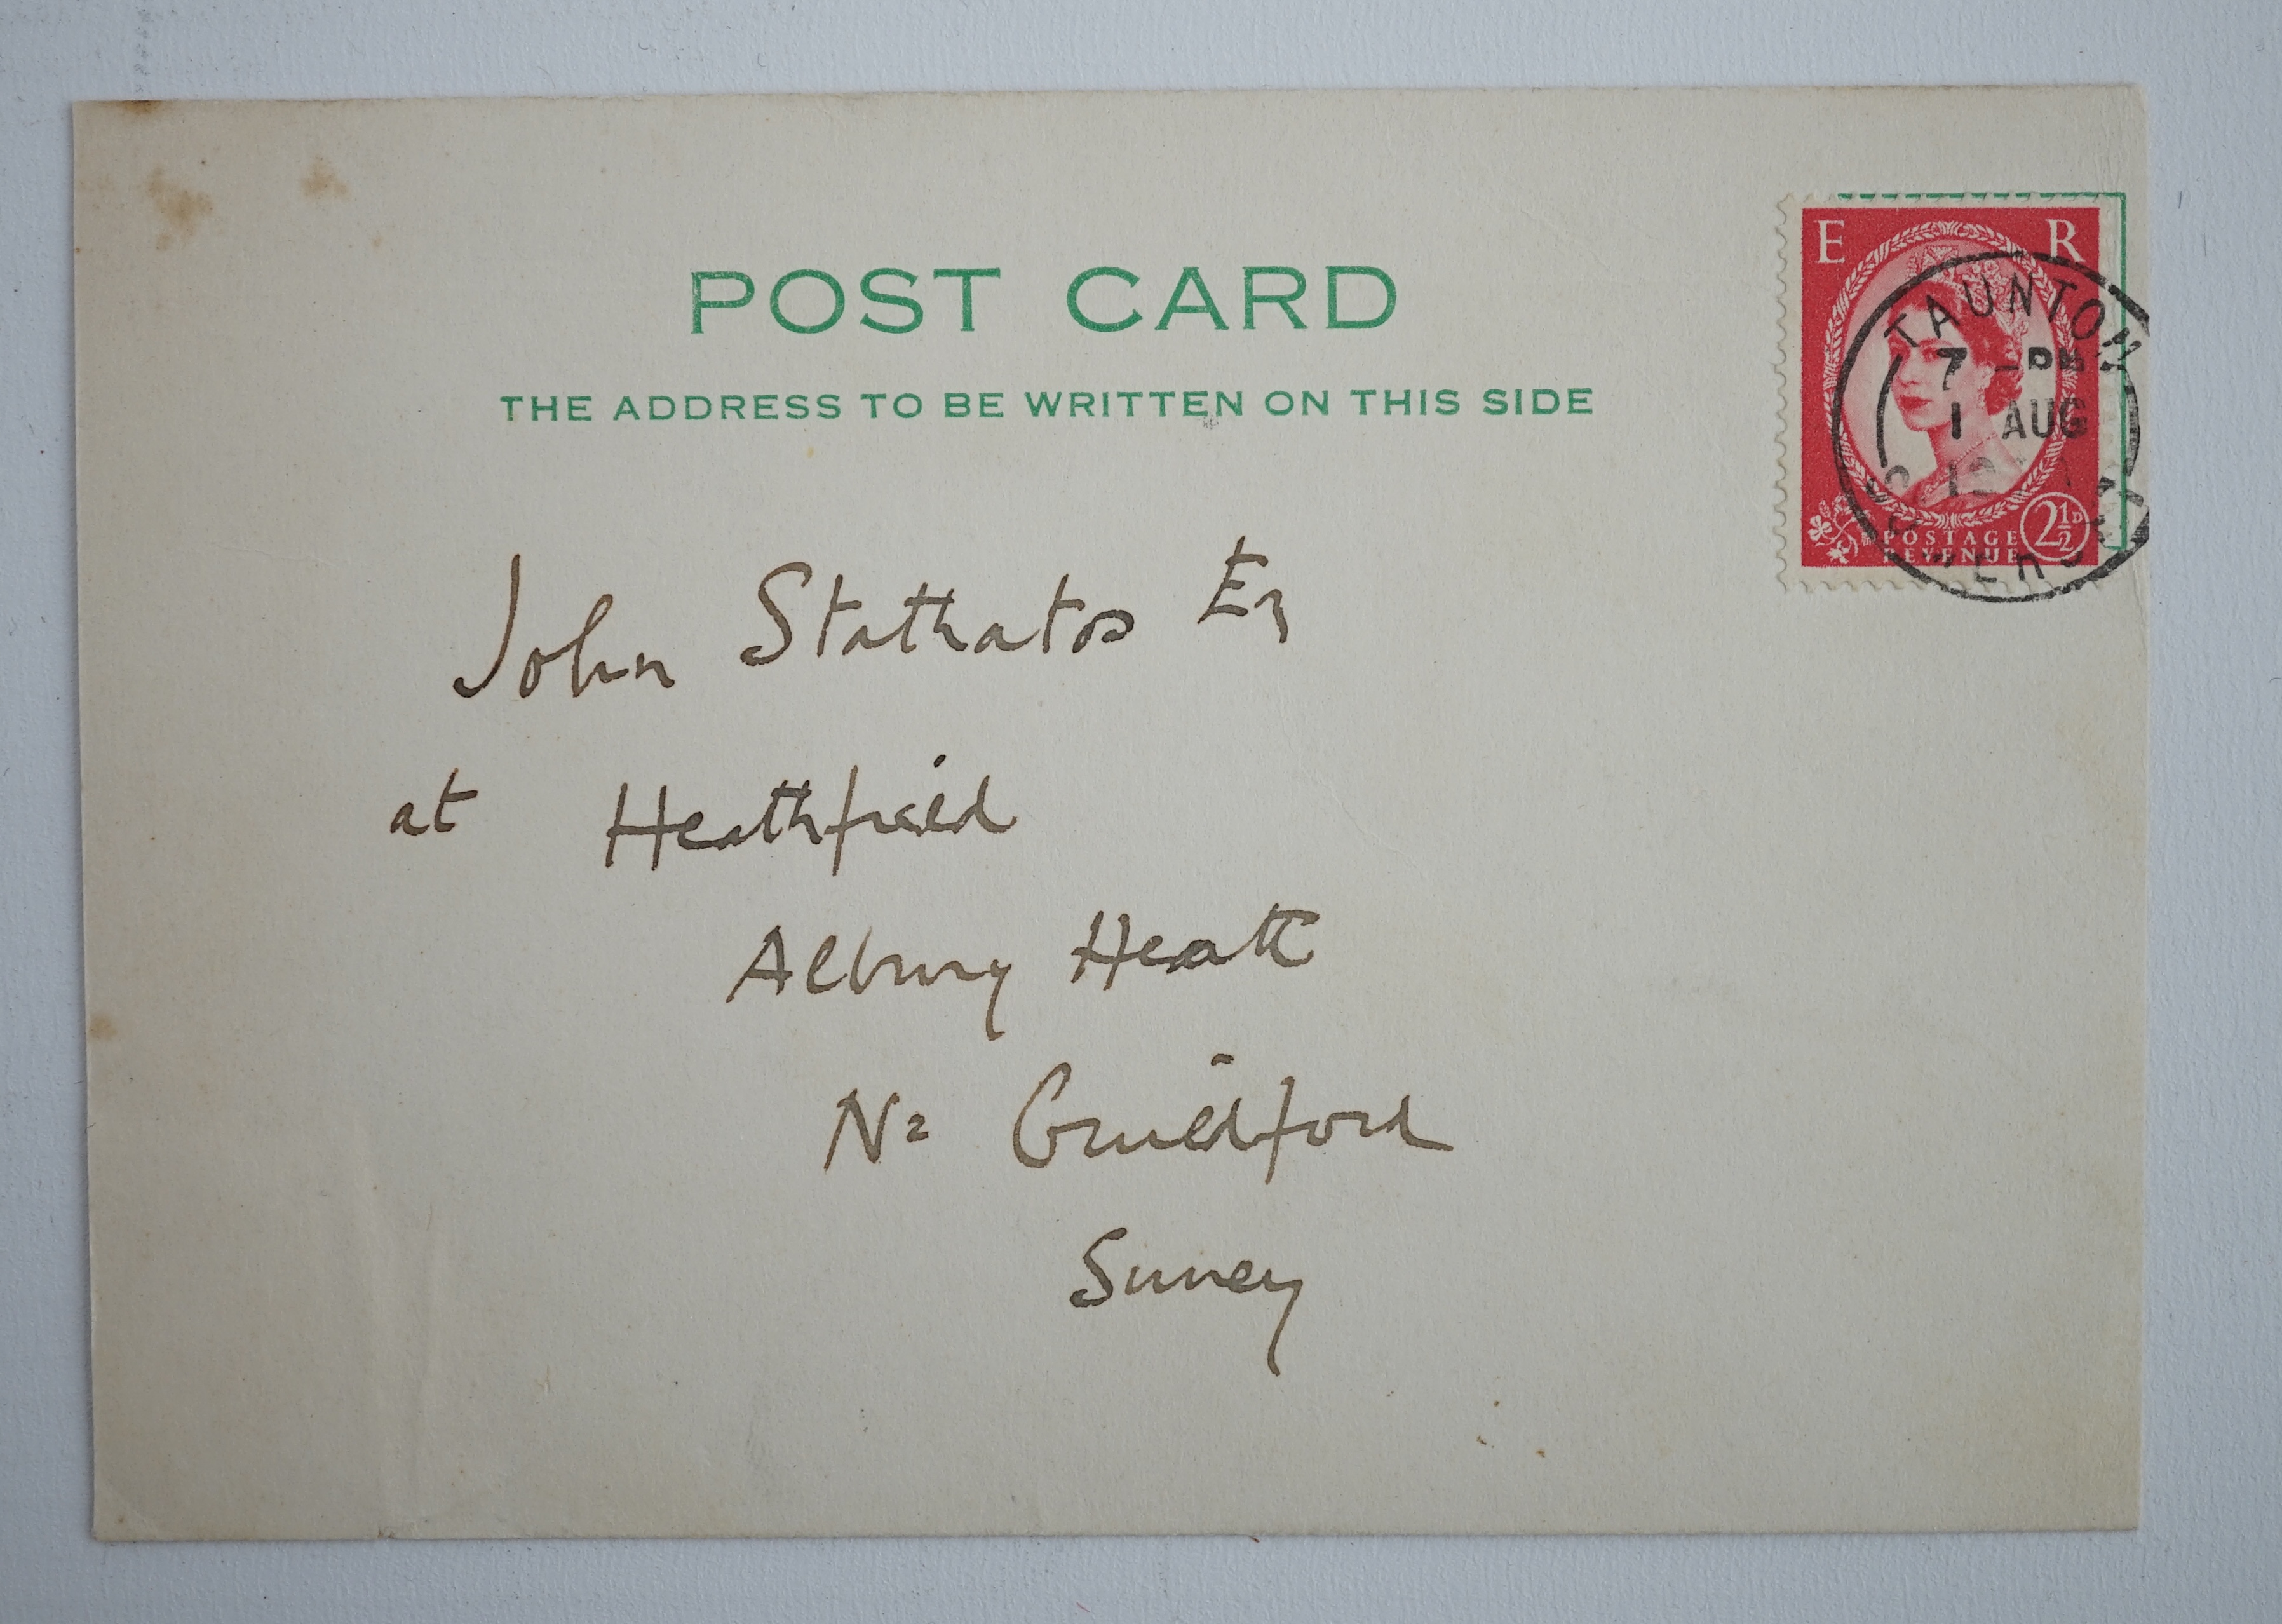 POST CARD
THE ADDRESS TO BE WRITTEN ON THIS SIDE
E R
POSTAGE
REVENUE
2½D
TAUNTON
7 - PM
1 AUG
SOMERSET
John Stathatos Esq
at Heathfield
Albury Heath
Nr Guildford
Surrey